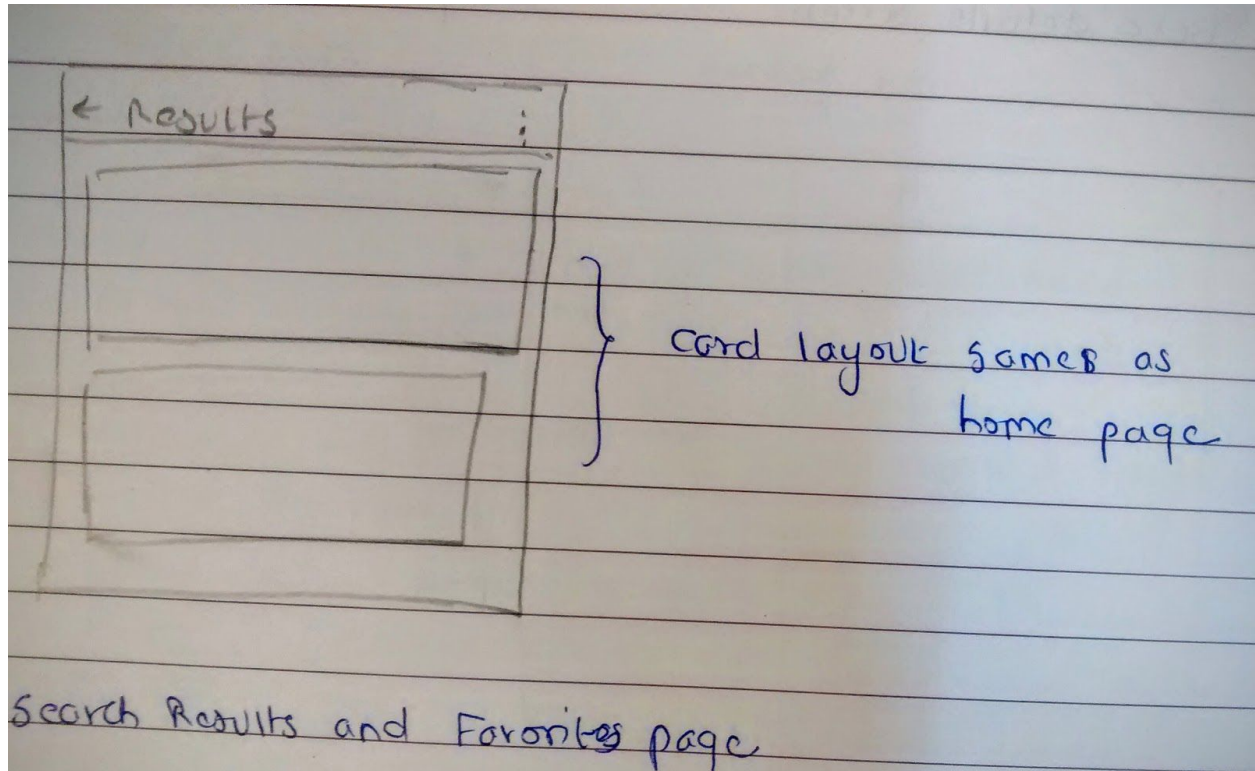 ← Results
Card layout same as
home page
Search Results and Favorites page